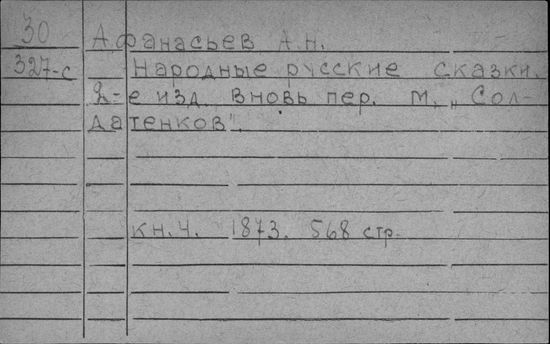 30 Афанасьев А.Н.
327-с Народные русские сказки.
2-е изд. вновь пер. М., „Сол-
датенков".
кн.4. 1873. 568 стр.